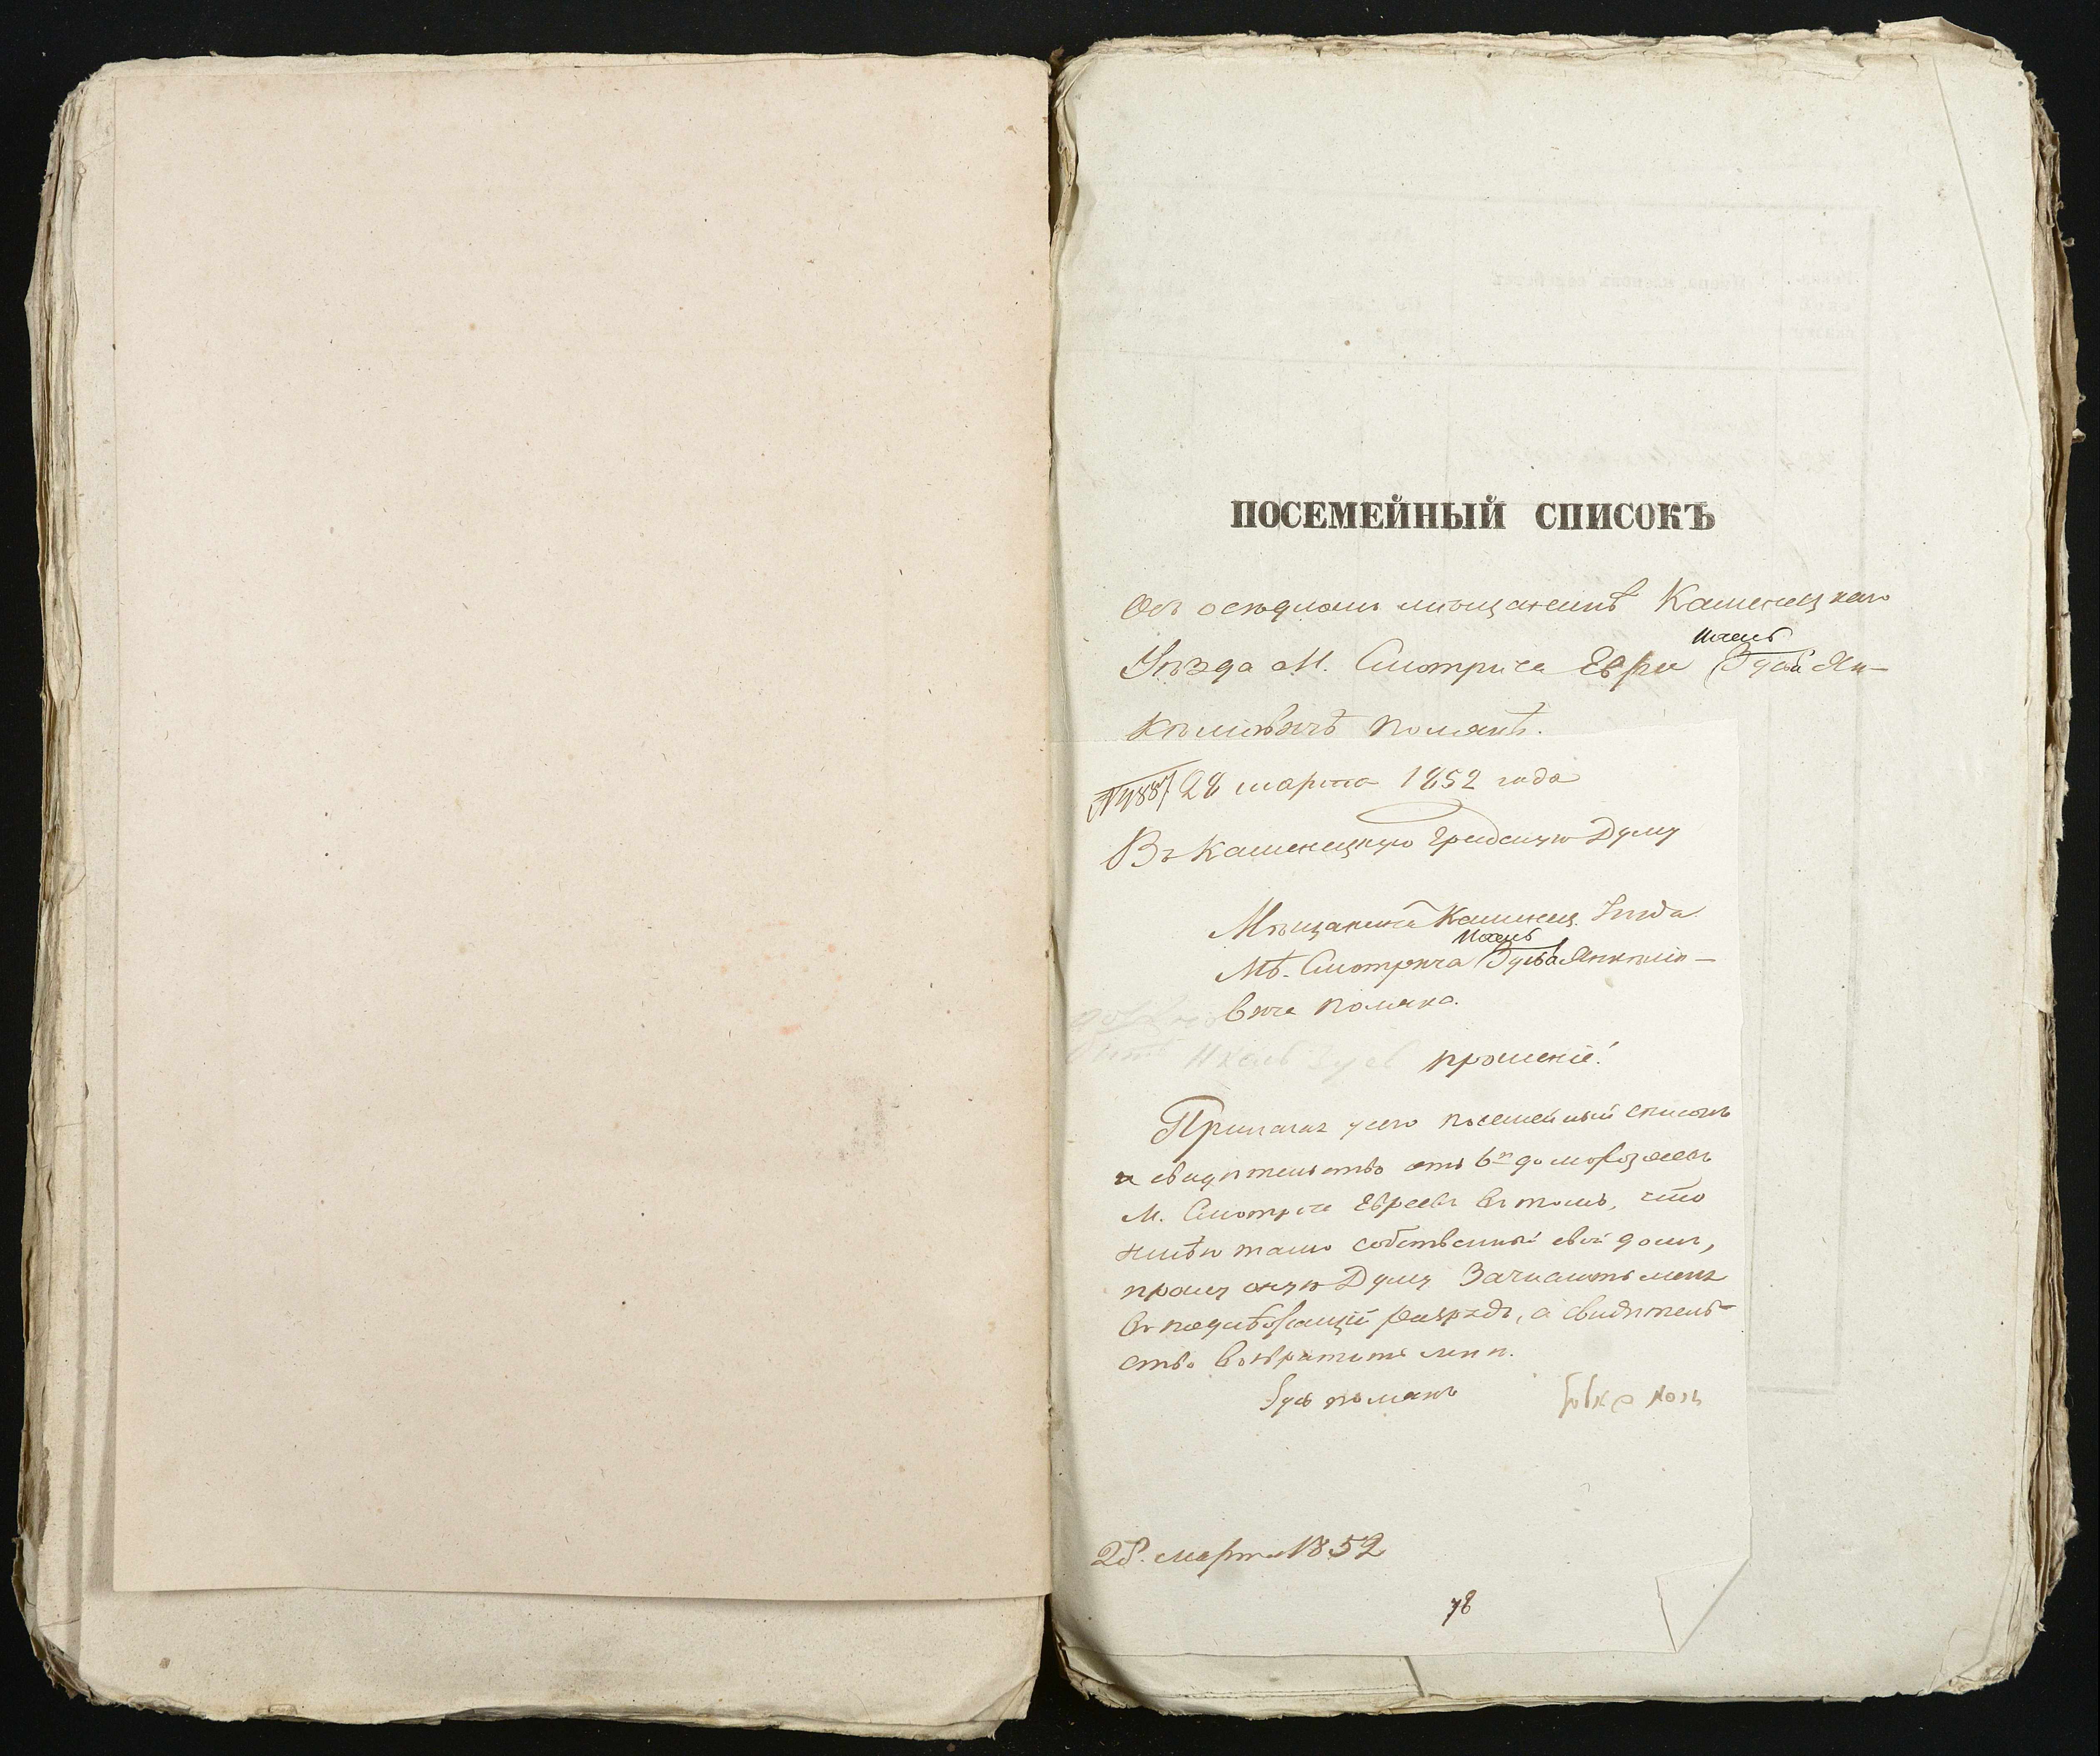 ПОСЕМЕЙНЫЙ СПИСОКЪ
Объ осѣдломъ мѣщанинѣ Каменецкаго
Ицко
Уѣзда М. Смотрича Еврѣ Зусь Ян-
келѣвичѣ Полякѣ.
28 марта 1852 года
Въ Каменецкую Градскую Думу
Мѣщанина Каменец. Уѣзда
М. Смотрича Зуся Янкелѣ-
вича Поляка.
прошеніе!
Прилагая у сего посемейный списокъ
и свидѣтельство отъ 6ти домохозяевъ
М. Смотрича Евреевъ въ томъ, что
имѣю тамъ собственный свой домъ,
прошу оную Думу Зачислить меня
въ подлѣжащій разрядъ, а свидѣтель-
ство возвратить мнѣ.
Зусь Полякъ
28. марта 1852
78